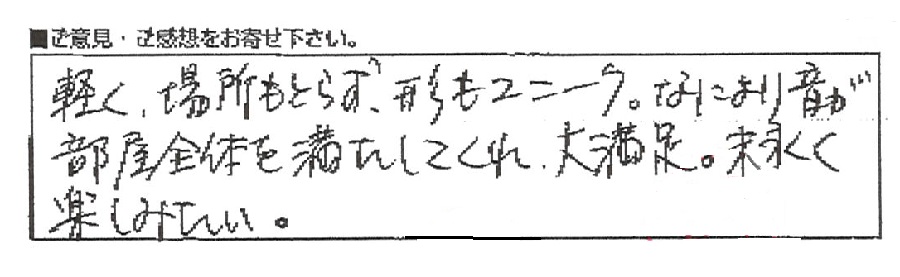 ■ご意見・ご感想をお寄せ下さい。
軽く、場所もとらず、形もユニーク。なにより音が
部屋全体を満たしてくれ、大満足。末永く
楽しみたい。